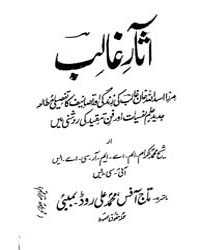 آثارِ غالب
مرزا اسد اللہ خان غالب کی زندگی اور تصانیف کا تفصیلی مطالعہ
جدید علم نفسیات اور فن تنقید کی روشنی میں
از
شیخ محمد اکرام، ایم۔ اے۔ ایم۔ آر۔ سی۔ اے۔ ایس
آئی۔ سی۔ ایس
تاج آفس محمد علی روڈ بمبئی